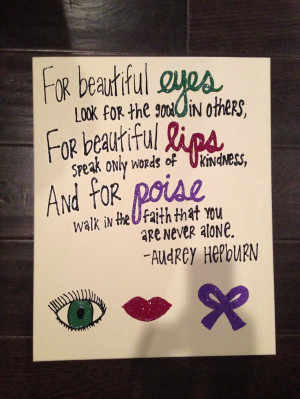 For beautiful eyes
Look for the good in others,
For beautiful lips
speak only words of kindness,
And for poise
walk in the faith that you
are never alone.
-Audrey Hepburn